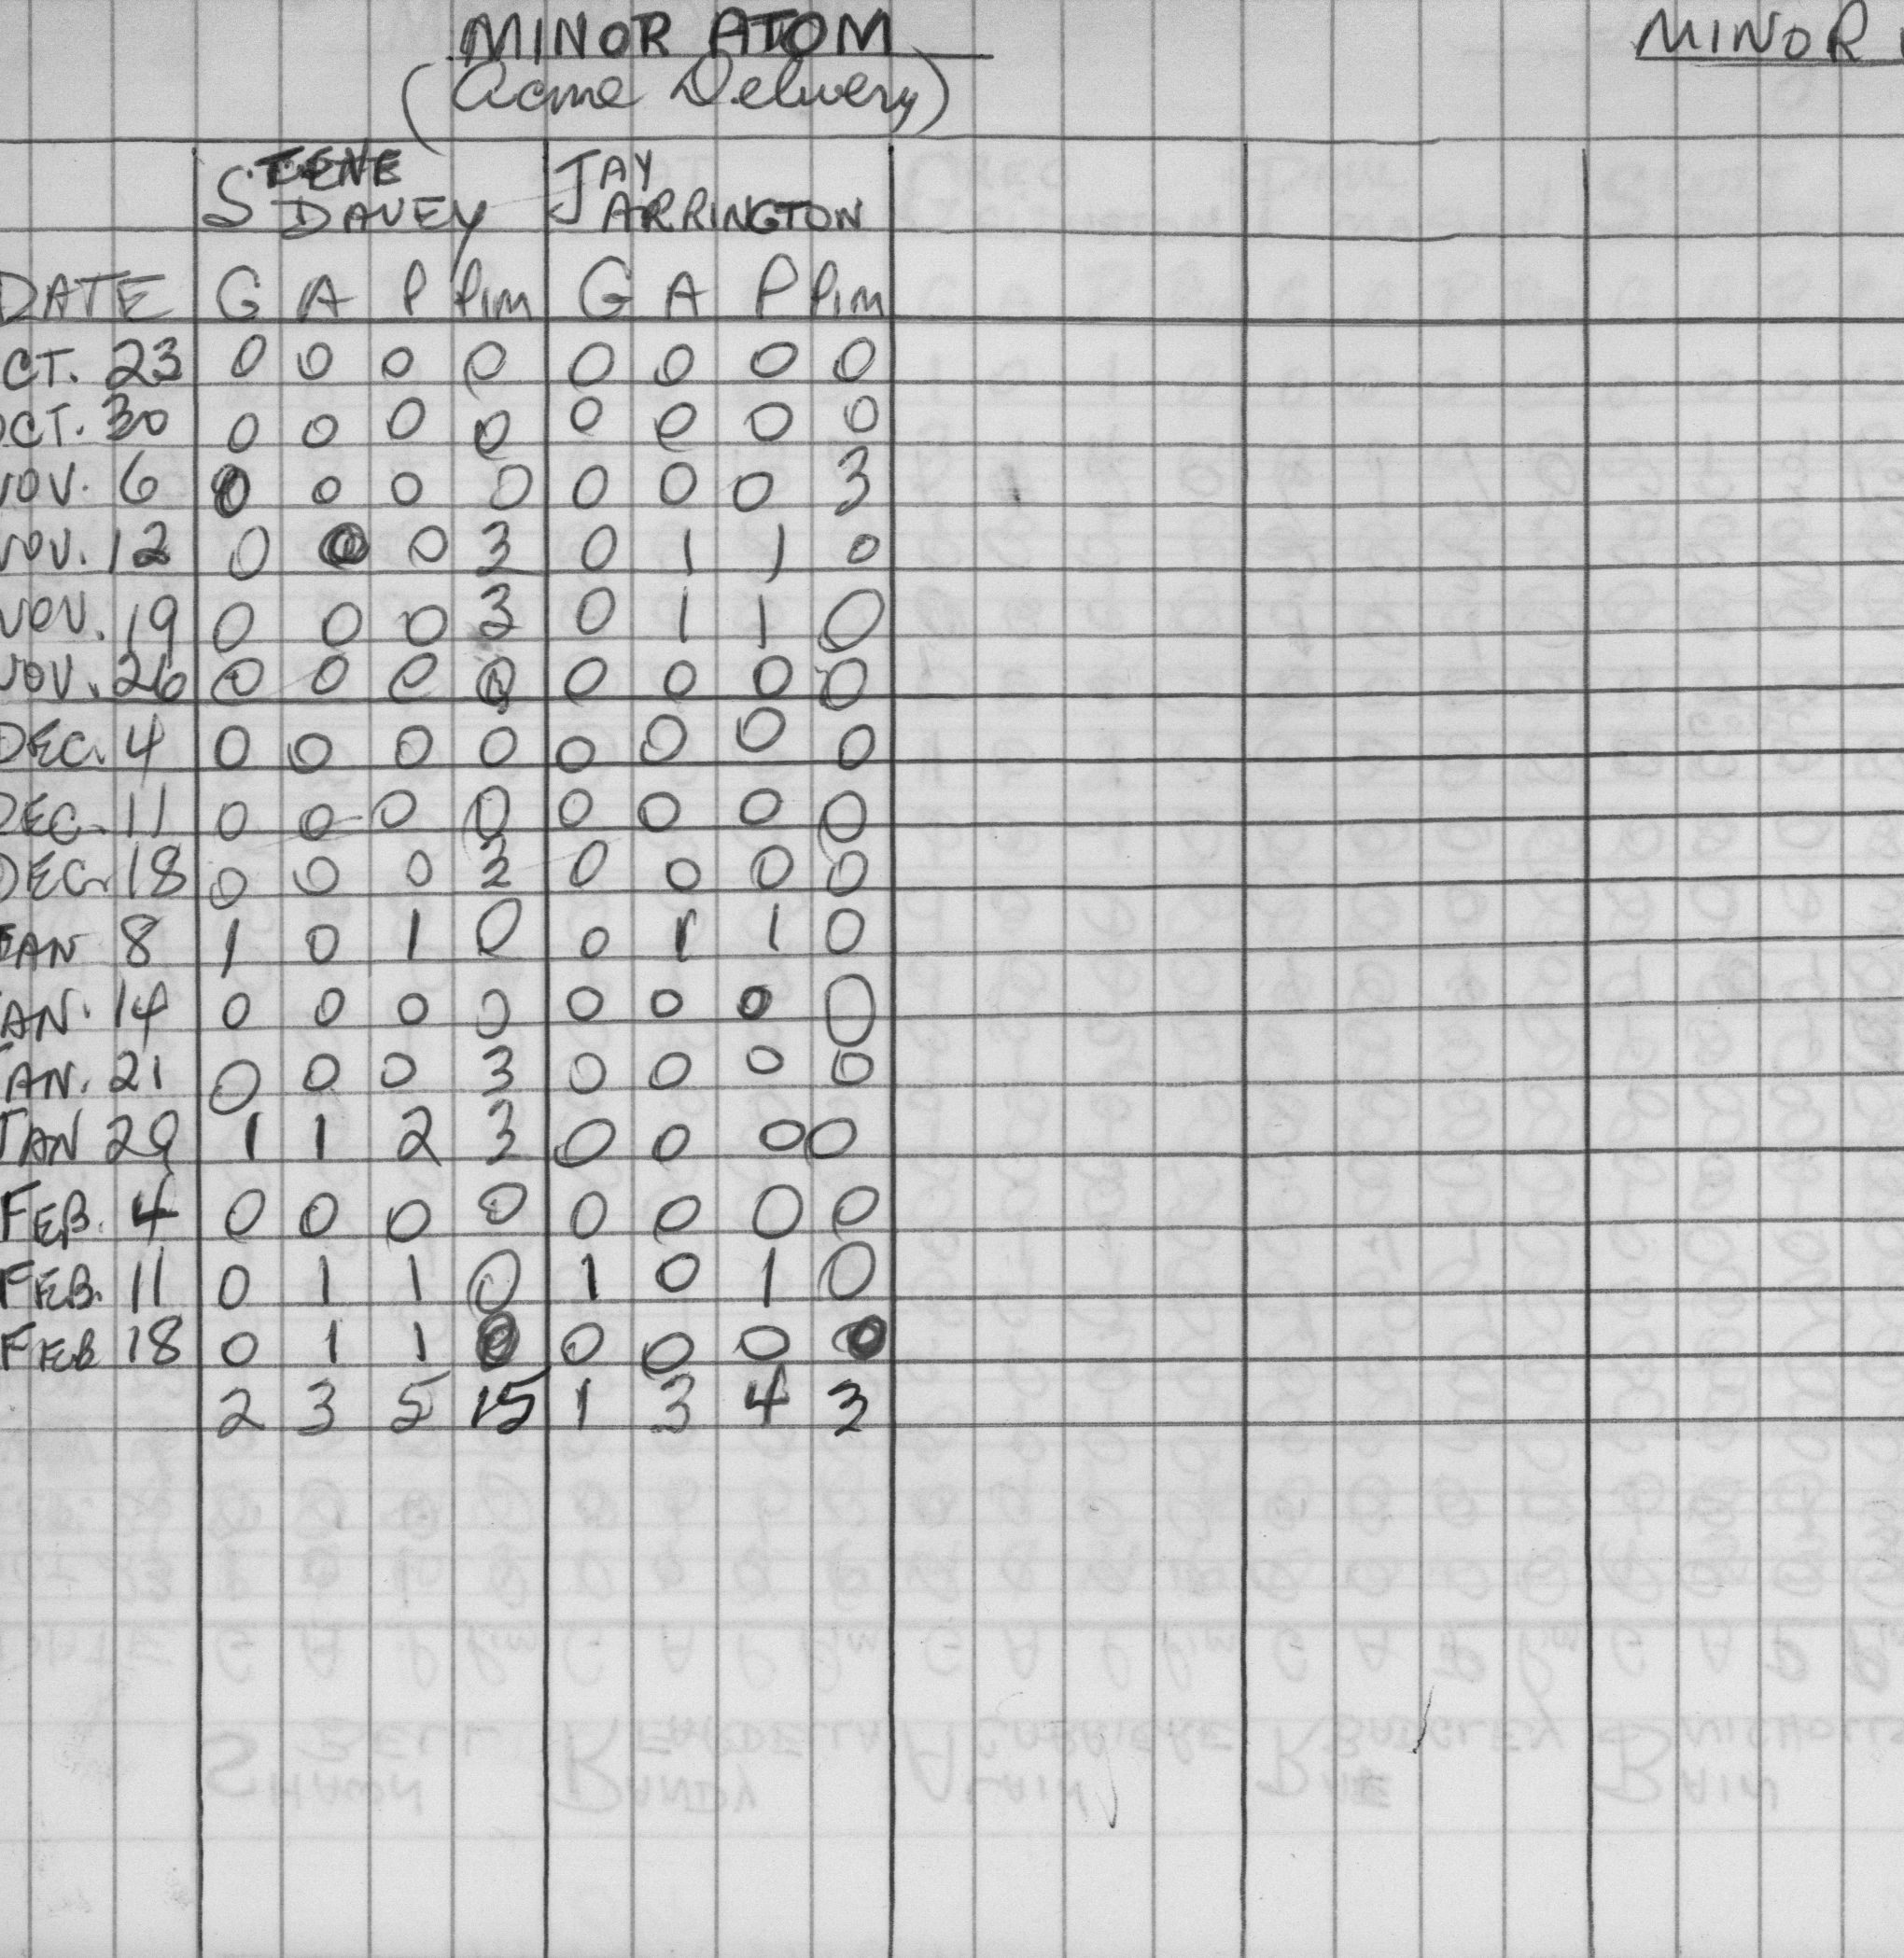 MINOR ATOM
MINOR
(Acme Delivery)
STEVE JAY
DAVEY ARRINGTON
DATE G A P Pim G A P Pim
CT. 23 0 0 0 0 0 0 0 0
OCT. 30 0 0 0 0 0 0 0 0
NOV. 6 0 0 0 0 0 0 0 3
NOV. 12 0 0 0 3 0 1 1 0
NOV. 19 0 0 0 3 0 1 1 0
NOV. 26 0 0 0 0 0 0 0 0
DEC. 4 0 0 0 0 0 0 0 0
DEC. 11 0 0 0 0 0 0 0 0
DEC. 18 0 0 0 2 0 0 0 0
JAN 8 1 0 1 0 0 1 1 0
AN. 14 0 0 0 0 0 0 0 0
JAN. 21 0 0 0 3 0 0 0 0
JAN 29 1 1 2 3 0 0 0 0
FEB. 4 0 0 0 0 0 0 0 0
FEB. 11 0 1 1 0 1 0 1 0
FEB 18 0 1 1 0 0 0 0 0
2 3 5 15 1 3 4 3